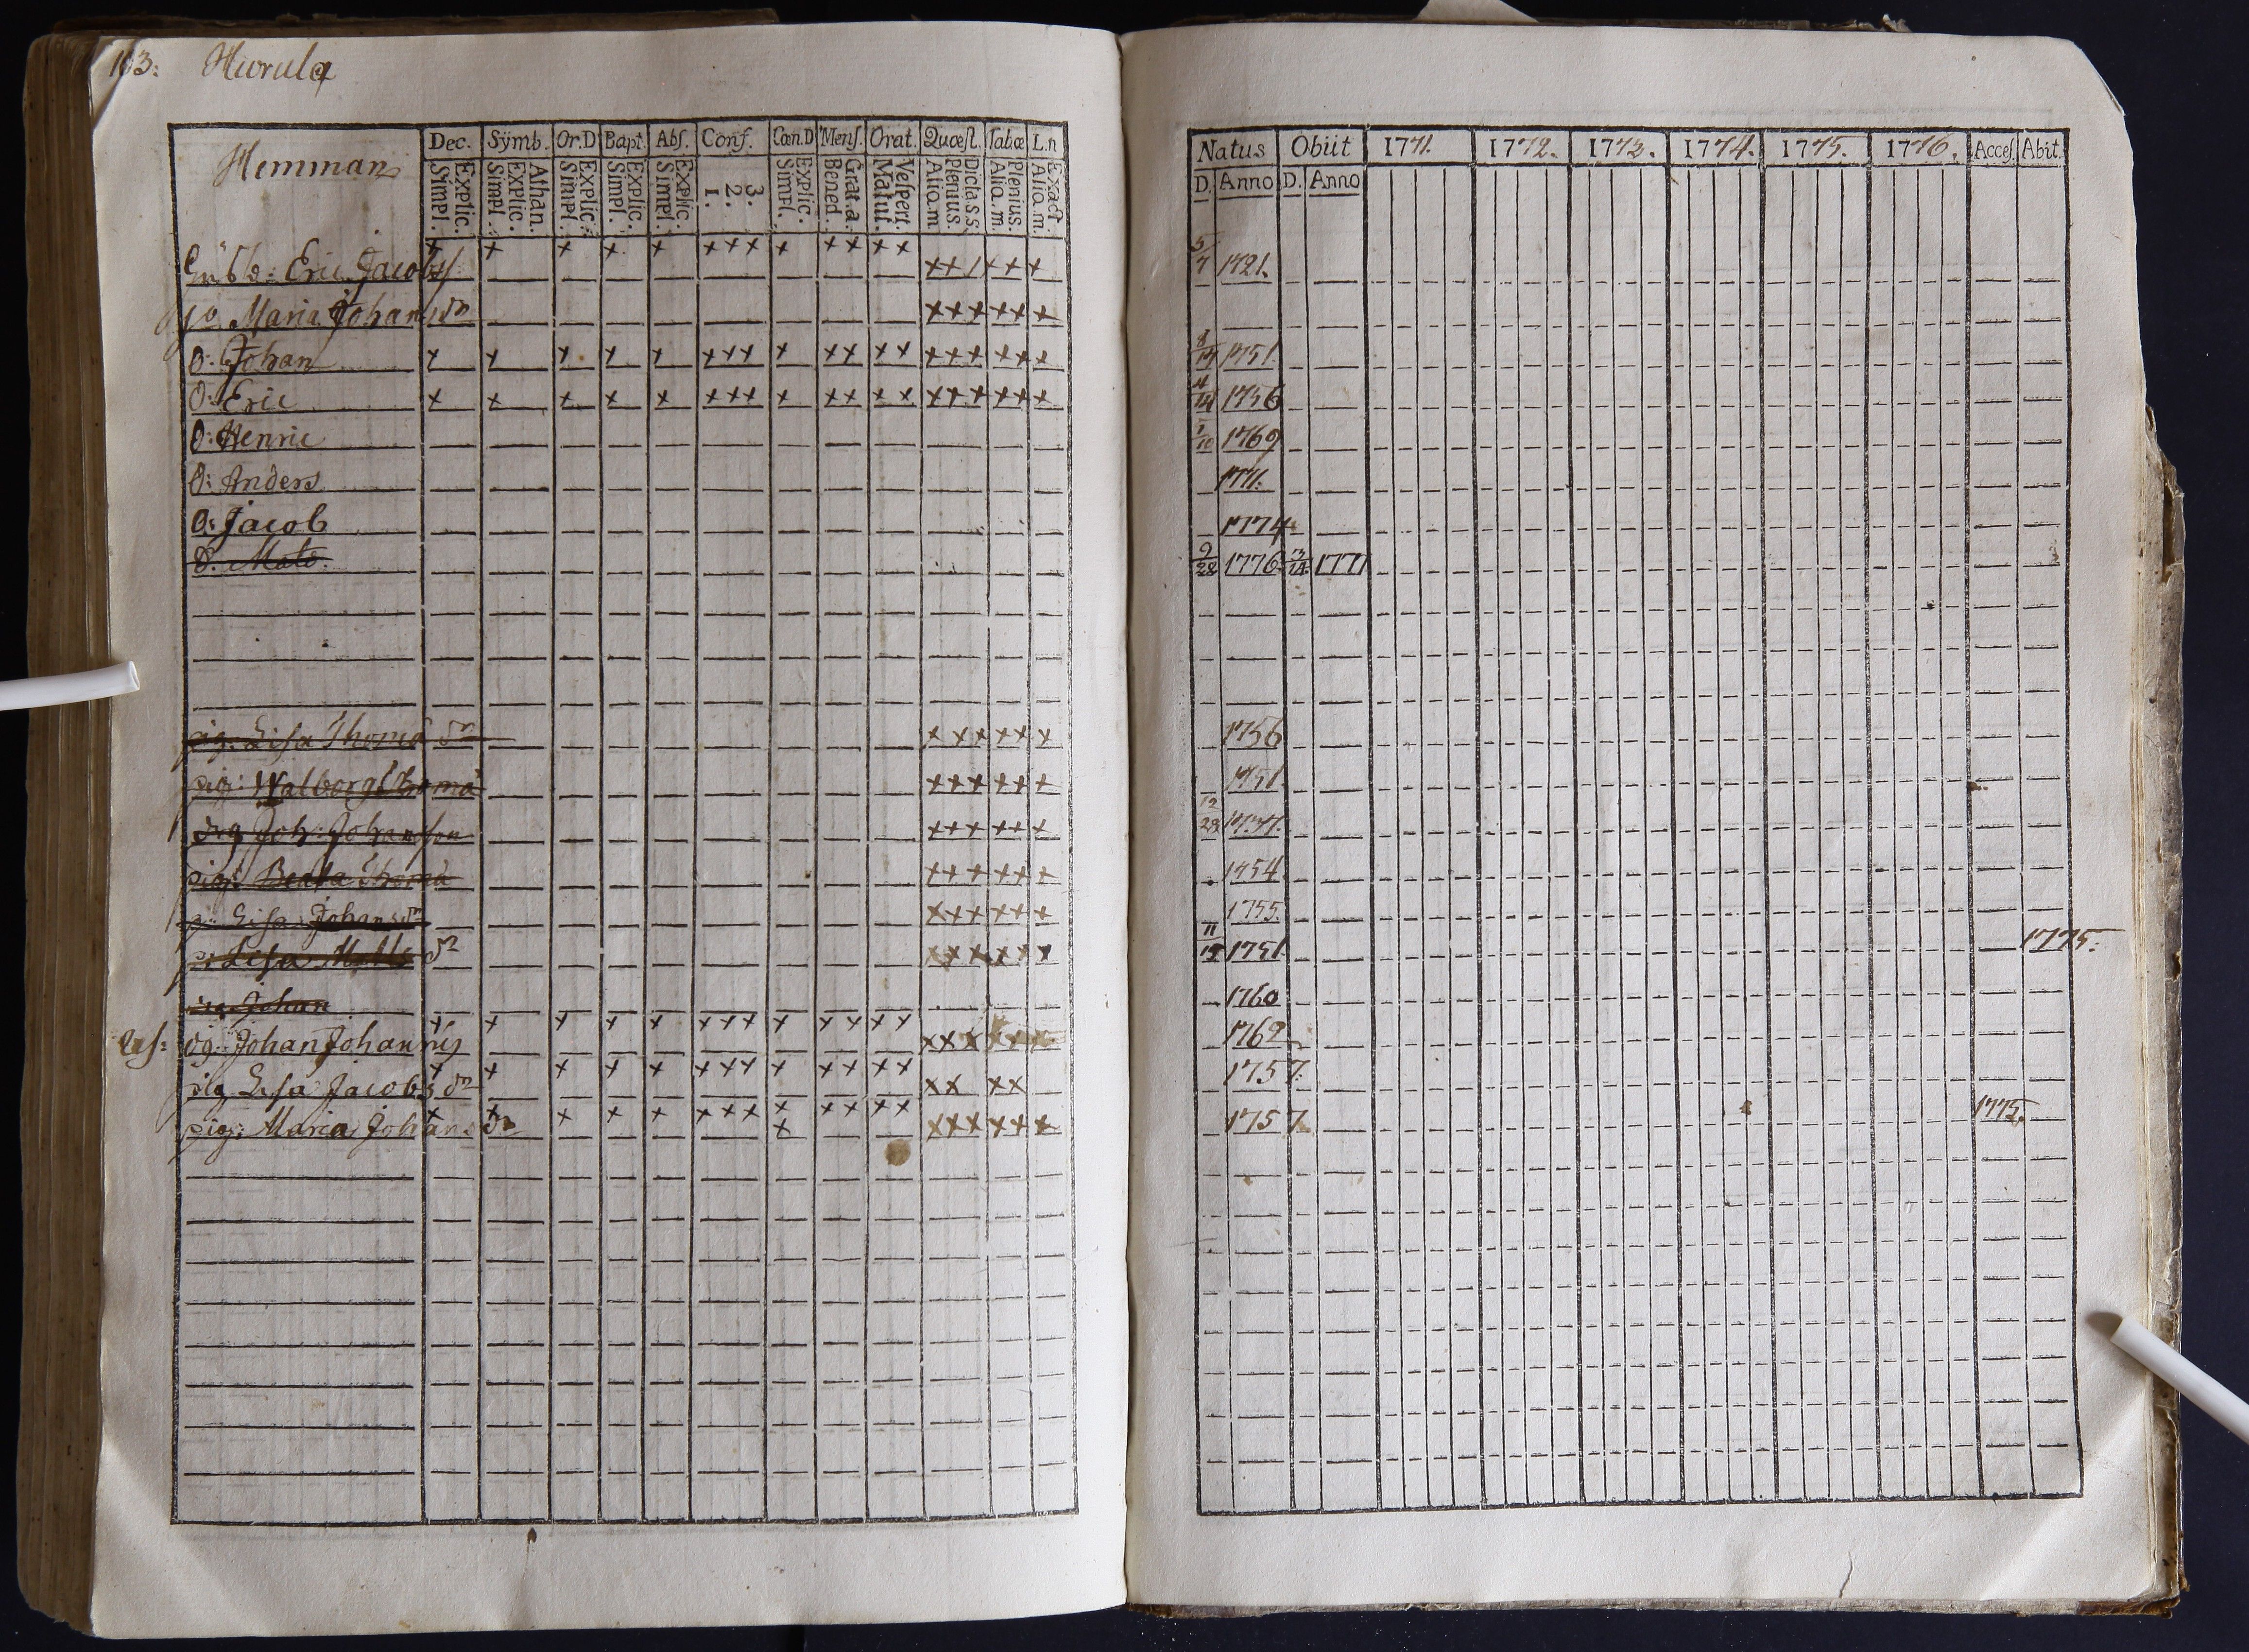 103: Hiorula
Hemman Dec. Sÿmb. Or.D Bapt. Abſ. Conf. Cœn.D Menſ. Orat. Quæſt. Tabæ L.n
Explic. Simpl. Athan. Explic. Simpl. Explic. Simpl. Explic. Simpl. Explic. Simpl. 3. 2. 1. Explic. Simpl. Grat.a. Bened. Veſpert. Matut. Dicta.s.s. Plenius. Aliq.m Plenius. Aliq.m. Exact. Aliq.m.
Natus Obiit 1771. 1772. 1773. 1774. 1775. 1776. Acceſ. Abit.
D. Anno D. Anno
Eric Jacobſ + + + + + +++ + ++ ++ ++/+++ 5/7 1721.
Maria Johans dr +++ +++
S: Johan + + + + + +++ + ++ ++ +++ +++ 1751.
S: Eric + + + + + +++ + ++ ++ +++ +++ 1756
S: Henric 1/10 1769
S: Anders 1771.
S: Jacob 1774
S. Mats. 9/28 1776 3/24 1777
pig: Lisa Thomæ dr +++ +++ 1756
pig: Walborg Thomæ +++ +++ 1751.
drg Joh: Johansson +++ +++ 12/29 1737.
pig: Beata Thomæ +++ +++ 1754
p: Lisa Johans dr +++ +++ 1755.
p: Lisa Matts dr +++ +++ 11/15 1751 1775.
drg Johan 1760
dg: Johan Johannis + + + + + +++ + ++ ++ +++ 1762
pig Lisa Jacobs dr + + + + + +++ + ++ ++ ++ ++ 1757.
pig: Maria Johans dr + + + + + +++ + + ++ ++ +++ +++ 1757. 1775.